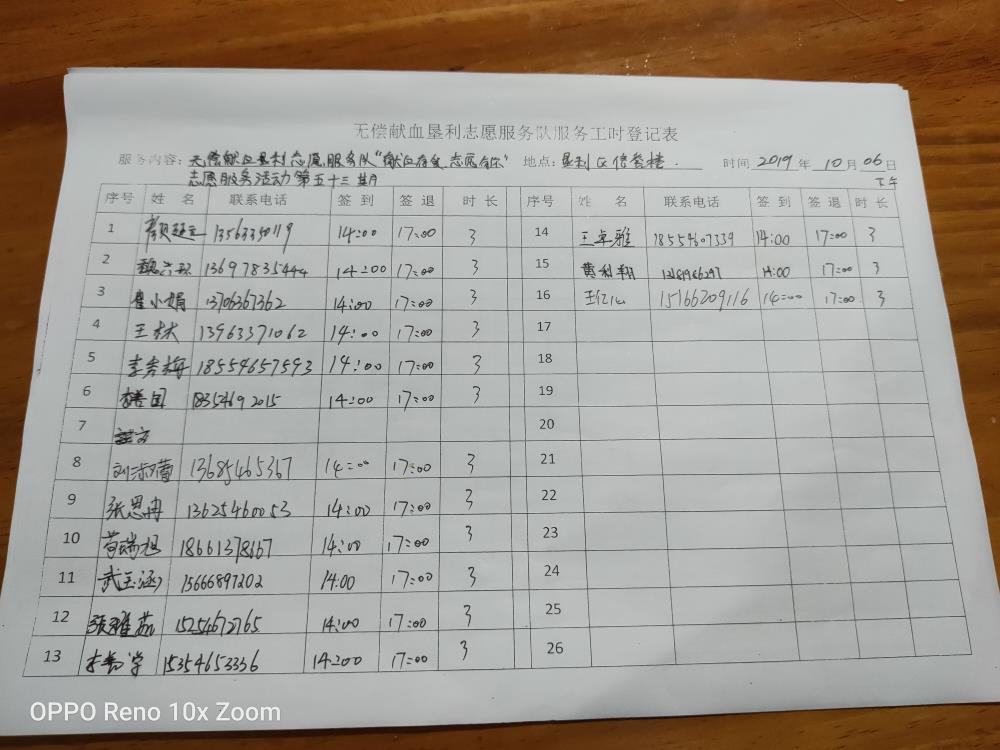 无偿献血垦利志愿服务队服务工时登记表
服务内容：无偿献血垦利志愿服务队“献血有爱,志愿有你” 地点：垦利区信誉楼. 时间 2019 年 10 月 06 日
志愿服务活动第五十三期 下午
序号 姓 名 联系电话 签 到 签 退 时 长 序号 姓 名 联系电话 签 到 签 退 时 长
1 14:00 17:00 3 14 王卓雅 18554607339 14:00 17:00 3
2 13697835444 14:00 17:00 3 15 黄利翔 14:00 17:00 3
3 崔小娟 13706367362 14:00 17:00 3 16 15166209116 14:00 17:00 3
4 王林 13963371062 14:00 17:00 3 17
5 李秀梅 18554657593 14:00 17:00 3 18
6 18354692015 14:00 17:00 3 19
7 20
8 刘淑蕾 13685465367 14:00 17:00 3 21
9 张恩冉 13625460053 14:00 17:00 3 22
10 苟瑞旭 18661378167 14:00 17:00 3 23
11 武玉涵 15666897202 14:00 17:00 3 24
12 张雅茹 15254672765 14:00 17:00 3 25
13 15354653336 14:00 17:00 3 26
OPPO Reno 10x Zoom